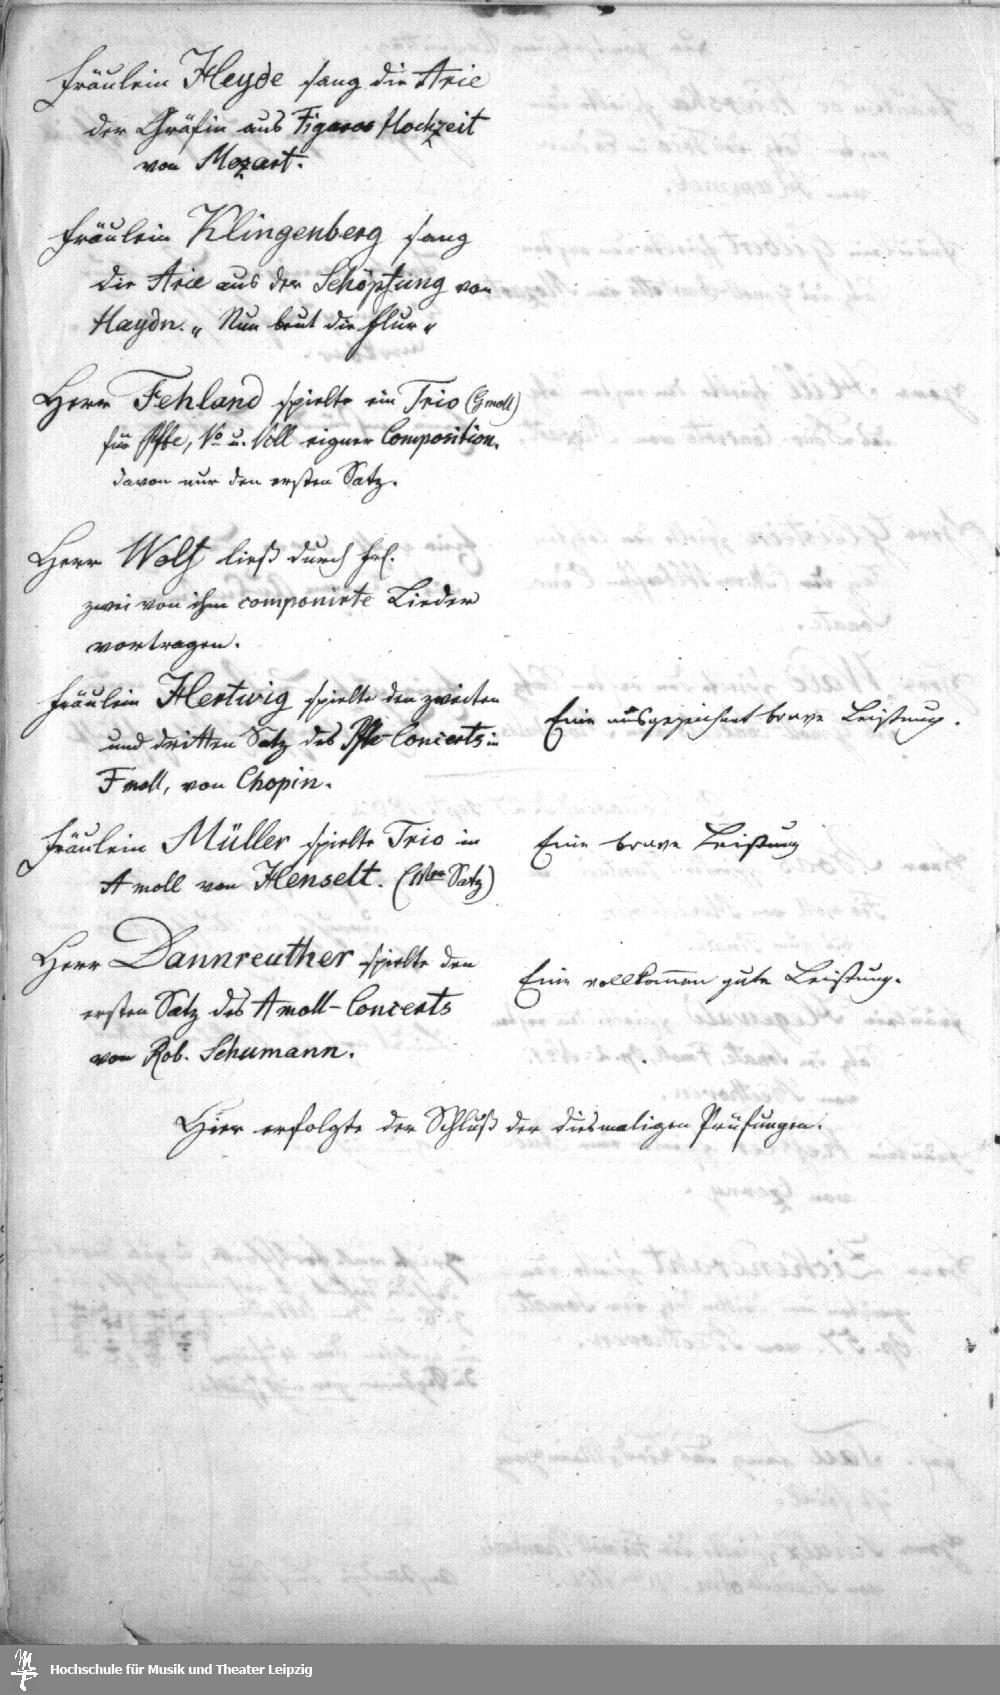 Fräulein Heyde sang die Arie
der Gräfin aus Figaros Hochzeit
von Mozart.
Fräulein Klingenberg sang
die Arie aus der Schöpfung von
Haydn. „ Nun beut die Flur „
Herr Fehland spielte ein Trio (Gmoll)
für Pfte, Vo u. Vcll eigner Composition.
davon nur den ersten Satz.
Herr Wolf ließ durch Frl.
zwei von ihm componirte Lieder
vortragen.
Fräulein Hertwig spielte den zweiten
und dritten Satz des Pfte Concerts in
F moll, von Chopin.
Eine ausgezeichnet brave Leistung.
Fräulein Müller spielte Trio in
A moll von Henselt. (1ster Satz)
Eine brave Leistung
Herr Dannreuther spielte den
ersten Satz des A moll-Concerts
von Rob. Schumann.
Eine vollkom̅en gute Leistung.
Hier erfolgte der Schluß der diesmaligen Prüfungen.
Hochschule für Musik und Theater Leipzig